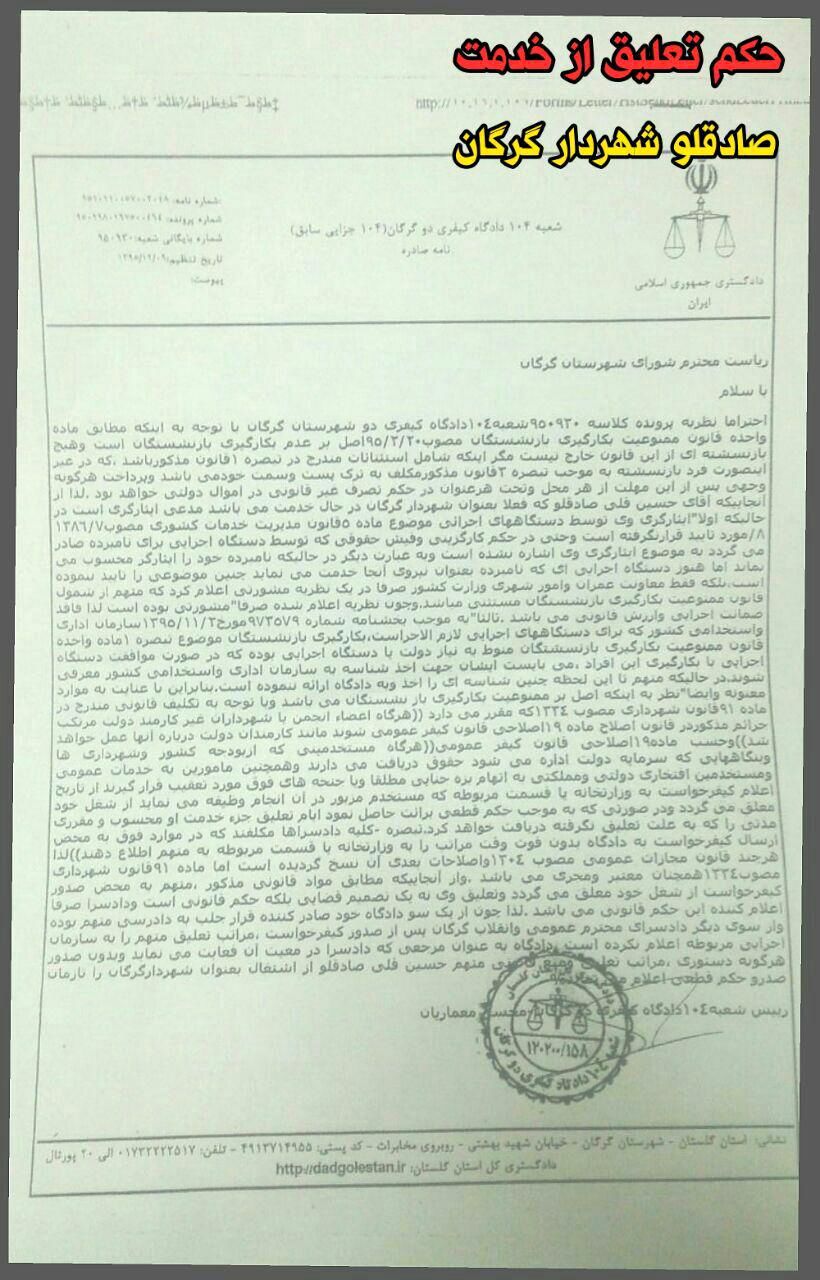 حکم تعلیق از خدمت
صادقلو شهردار گرگان
شعبه ۱۰۴ دادگاه کیفری دو گرگان(۱۰۴ جزایی سابق)
نامه صادره
شماره نامه:
شماره پرونده:
شماره بایگانی شعبه: ۹۵۰۹۳۰
تاریخ تنظیم: ۱۳۹۵/۱۲/۰۹
پیوست:
دادگستری جمهوری اسلامی
ایران
ریاست محترم شورای شهرستان گرگان
با سلام
احتراما نظربه پرونده کلاسه ۹۵۰۹۳۰شعبه۱۰٤دادگاه کیفری دو شهرستان گرگان با توجه به اینکه مطابق ماده
واحده قانون ممنوعیت بکارگیری بازنشستگان مصوب۹۵/۲/۲۰اصل بر عدم بکارگیری بازنشستگان است وهیچ
بازنشسته ای از این قانون خارج نیست مگر اینکه شامل استثنائات مندرج در تبصره ۱قانون مذکورباشد ،که در غیر
اینصورت فرد بازنشسته به موجب تبصره ۲قانون مذکورمکلف به ترک پست وسمت خودمی باشد وپرداخت هرگونه
وجهی پس از این مهلت از هر محل وتحت هرعنوان در حکم تصرف غیر قانونی در اموال دولتی خواهد بود .لذا از
آنجاییکه آقای حسین قلی صادقلو که فعلا بعنوان شهردار گرگان در حال خدمت می باشد مدعی ایثارگری است در
حالیکه اولا"ایثارگری وی توسط دستگاههای اجرائی موضوع ماده ۵قانون مدیریت خدمات کشوری مصوب۱۳۸٦/۷
/۸مورد تایید قرارنگرفته است وحتی در حکم کارگزینی وفیش حقوقی که توسط دستگاه اجرایی برای نامبرده صادر
می گردد به موضوع ایثارگری وی اشاره نشده است وبه عبارت دیگر در حالیکه نامبرده خود را ایثارگر محسوب می
نماید اما هنوز دستگاه اجرایی ای که نامبرده بعنوان نیروی آنجا خدمت می نماید چنین موضوعی را تایید ننموده
است.بلکه فقط معاونت عمران وامور شهری وزارت کشور صرفا در یک نظریه مشورتی اعلام کرد که متهم از شمول
قانون ممنوعیت بکارگیری بازنشستگان مستثنی میباشد.وچون نظریه اعلام شده صرفا"مشورتی بوده است لذا فاقد
ضمانت اجرایی وارزش قانونی می باشد .ثالثا"به موجب بخشنامه شماره ۹۷۳۵۷۹مورخ۱۳۹۵/۱۱/۲سازمان اداری
واستخدامی کشور که برای دستگاههای اجرایی لازم الاجراست،بکارگیری بازنشستگان موضوع تبصره ۱ماده واحده
قانون ممنوعیت بکارگیری بازنشستگان منوط به نیاز دولت یا دستگاه اجرایی بوده که در صورت موافقت دستگاه
اجرایی با بکارگیری این افراد ،می بایست ایشان جهت اخذ شناسه به سازمان اداری واستخدامی کشور معرفی
شوند.در حالیکه متهم تا این لحظه چنین شناسه ای را اخذ وبه دادگاه ارائه ننموده است.بنابراین با عنایت به موارد
معنونه وایضا"نظر به اینکه اصل بر ممنوعیت بکارگیری باز نشستگان می باشد وبا توجه به تکلیف قانونی مندرج در
ماده ۹۱قانون شهرداری مصوب ۱۳۳٤که مقرر می دارد ((هرگاه اعضاء انجمن یا شهرداران غیر کارمند دولت مرتکب
جرائم مذکوردر قانون اصلاح ماده ۱۹اصلاحی قانون کیفر عمومی شوند مانند کارمندان دولت درباره آنها عمل خواهد
شد))وحسب ماده۱۹اصلاحی قانون کیفر عمومی((هرگاه مستخدمینی که ازبودجه کشور وشهرداری ها
وبنگاههایی که سرمایه دولت اداره می شود حقوق دریافت می دارند وهمچنین مامورین به خدمات عمومی
ومستخدمین افتخاری دولتی ومملکتی به اتهام بزه جنایی مطلقا ویا جنحه های فوق مورد تعقیب قرار گیرند از تاریخ
اعلام کیفرخواست به وزارتخانه یا قسمت مربوطه که مستخدم مزبور در آن انجام وظیفه می نماید از شغل خود
معلق می گردد ودر صورتی که به موجب حکم قطعی برائت حاصل نمود ایام تعلیق جزء خدمت او محسوب و مقرری
مدتی را که به علت تعلیق نگرفته دریافت خواهد کرد.تبصره -کلیه دادسراها مکلفند که در موارد فوق به محض
ارسال کیفرخواست به دادگاه بدون فوت وقت مراتب را به وزارتخانه یا قسمت مربوطه به متهم اطلاع دهند))لذا
هرچند قانون مجازات عمومی مصوب ۱۳۰٤واصلاحات بعدی آن نسخ گردیده است اما ماده ۹۱قانون شهرداری
مصوب۱۳۳٤همچنان معتبر ومجری می باشد .واز آنجاییکه مطابق مواد قانونی مذکور ،متهم به محض صدور
کیفرخواست از شغل خود معلق می گردد وتعلیق وی نه یک تصمیم قضایی بلکه حکم قانونی است ودادسرا صرفا
اعلام کننده این حکم قانونی می باشد .لذا چون از یک سو دادگاه خود صادر کننده قرار جلب به دادرسی متهم بوده
واز سوی دیگر دادسرای محترم عمومی وانقلاب گرگان پس از صدور کیفرخواست ،مراتب تعلیق متهم را به سازمان
اجرایی مربوطه اعلام نکرده است ،دادگاه به عنوان مرجعی که دادسرا در معیت آن فعایت می نماید وبدون صدور
هرگونه دستوری ،مراتب تعلیق ومنع قانونی متهم حسین قلی صادقلو از اشتغال بعنوان شهردارگرگان را تازمان
صدرو حکم قطعی اعلام
رییس شعبه۱۰٤دادگاه کیفری دو گرگان-محسن معماریان
۱۲۰۲۰۰/۱۵۸
شعبه ۱۰۴ دادگاه کیفری دو گرگان
نشانی: استان گلستان - شهرستان گرگان - خیابان شهید بهشتی - روبروی مخابرات - کد پستی: ۴۹۱۳۷۱۴۹۵۵ - تلفن: ۰۱۷۳۲۲۲۲۵۱۷ الی ۲۰ پورتال
دادگستری کل استان گلستان: http://dadgolestan.ir